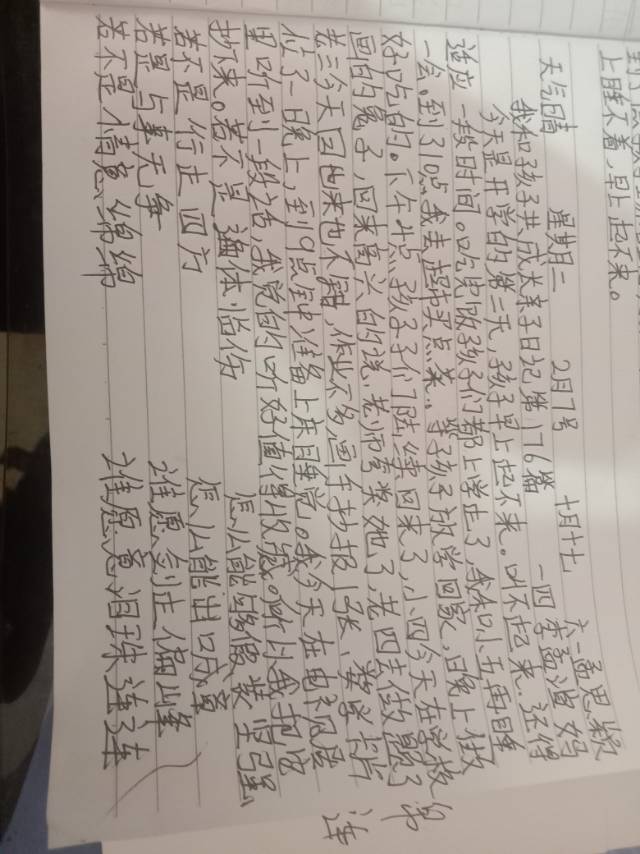 上睡不着，早上起不来。
天气晴 星期二 2月7号 十月十七 六一孟思颖
我和孩子共成长亲子日记第176篇 一四李孟 妈
今天是开学的第二天，孩子早上起不来。叫不起来，还得
适应一段时间。吃完饭孩子们都上学走了，我和小五再睡
一会。到3:10点我去超市买点菜、等孩子放学回家，晚上做
好吃的。下午4点孩子子们陆续回来了，小四今天在学校
画的兔子，回来高兴的说，老师夸奖她了，老四去做题了
老三今天回也来也不闲，作业不多画手抄报1张，数学卡片
忙了一晚上，到9点钟准备上床睡觉。我今天在电视
里听到一段话，我觉的听好值得收藏。所以我把它
抄来。若不是遍体临伤 怎么能够假装坚强
若不是行走四方 怎么能出口成章
若是与事无争 谁愿剑走偏峰
若不是情意绵绵 谁愿意泪珠连连